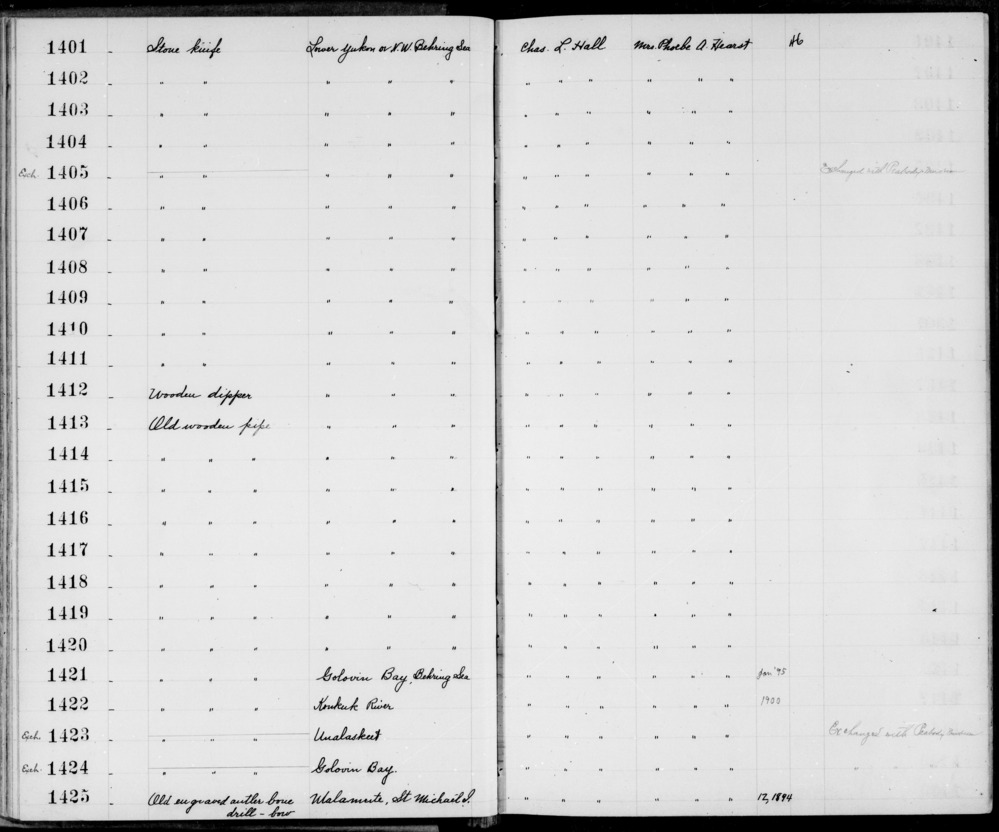 1401 Stone knife Lower Yukon or N.W. Behring Sea Chas. L. Hall Mrs. Phoebe A. Hearst 46
1402 " " " " " " " " " " "
1403 " " " " " " " " " " "
1404 " " " " " " " " " " "
Exch. 1405 " " " " " " " " " " " Exchanged with Peabody Museum
1406 " " " " " " " " " " " "
1407 " " " " " " " " " " " "
1408 " " " " " " " " " " " "
1409 " " " " " " " " " " " "
1410 " " " " " " " " " " " "
1411 " " " " " " " " " " " "
1412 Wooden dipper " " " " " " " " " "
1413 Old wooden pipe " " " " " " " " " "
1414 " " " " " " " " " " " " "
1415 " " " " " " " " " " " " "
1416 " " " " " " " " " " " " "
1417 " " " " " " " " " " " " "
1418 " " " " " " " " " " " " "
1419 " " " " " " " " " " " " "
1420 " " " " " " " " " " " " "
1421 " " " Golovin Bay, Behring Sea " " " " " " " Jan '95
1422 " " " Konkuk River " " " " " " " 1900
Exch. 1423 " " " Unalaskeet " " " " " " " Exchanged with Peabody Museum
Exch. 1424 " " " Golovin Bay. " " " " " " "
1425 Old engraved antler bone Malamute, St Michael I. " " " " " " " 17, 1894
drill-bow